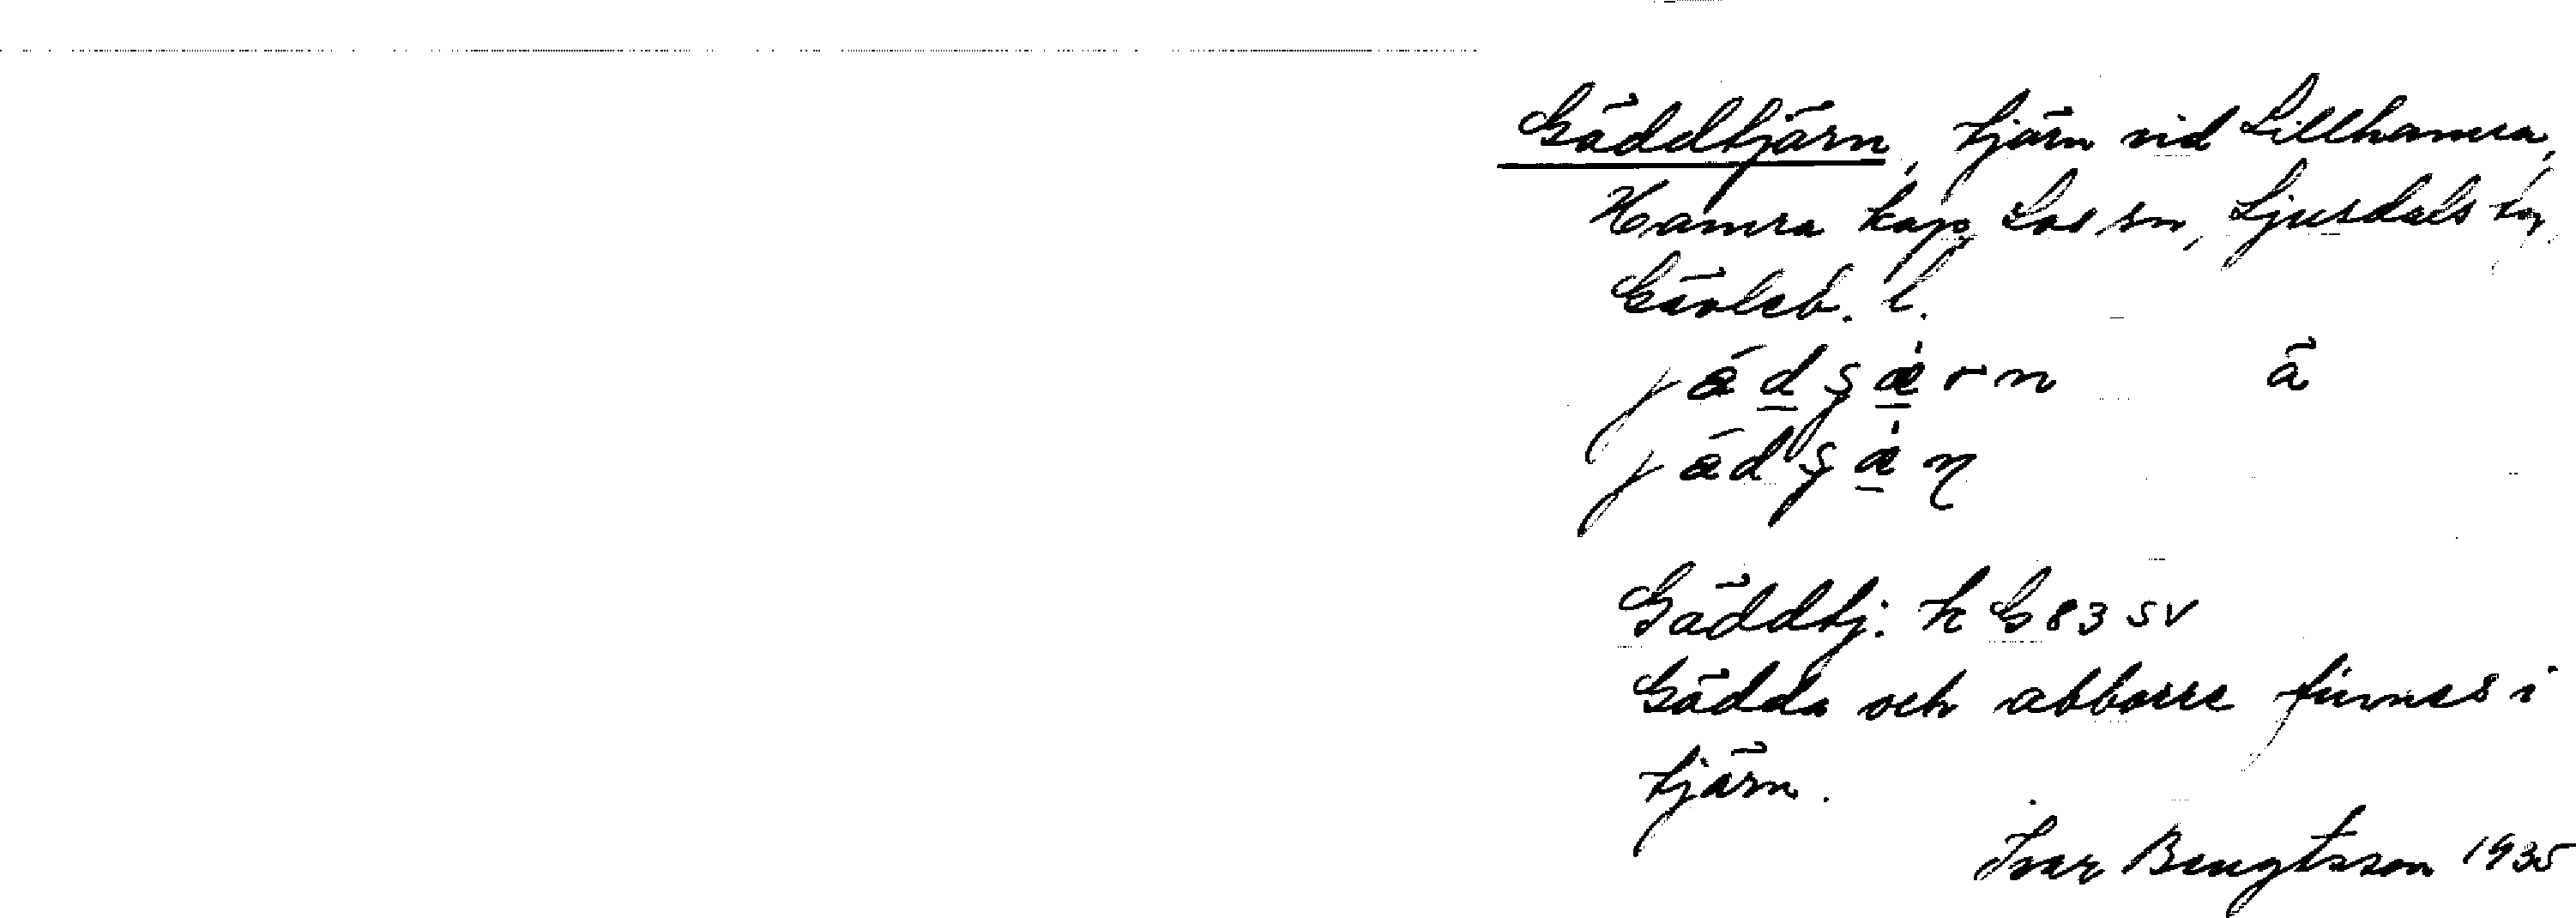 Gäddtjärn, tjärn vid Lillhamra,
Hamra kap, Los sn, Ljusdals tg,
Gävleb. l.
Gäddtj. k G 83 SV
Gädda och abborre finnes i
tjärn.
Ivar Bengtsson 1935